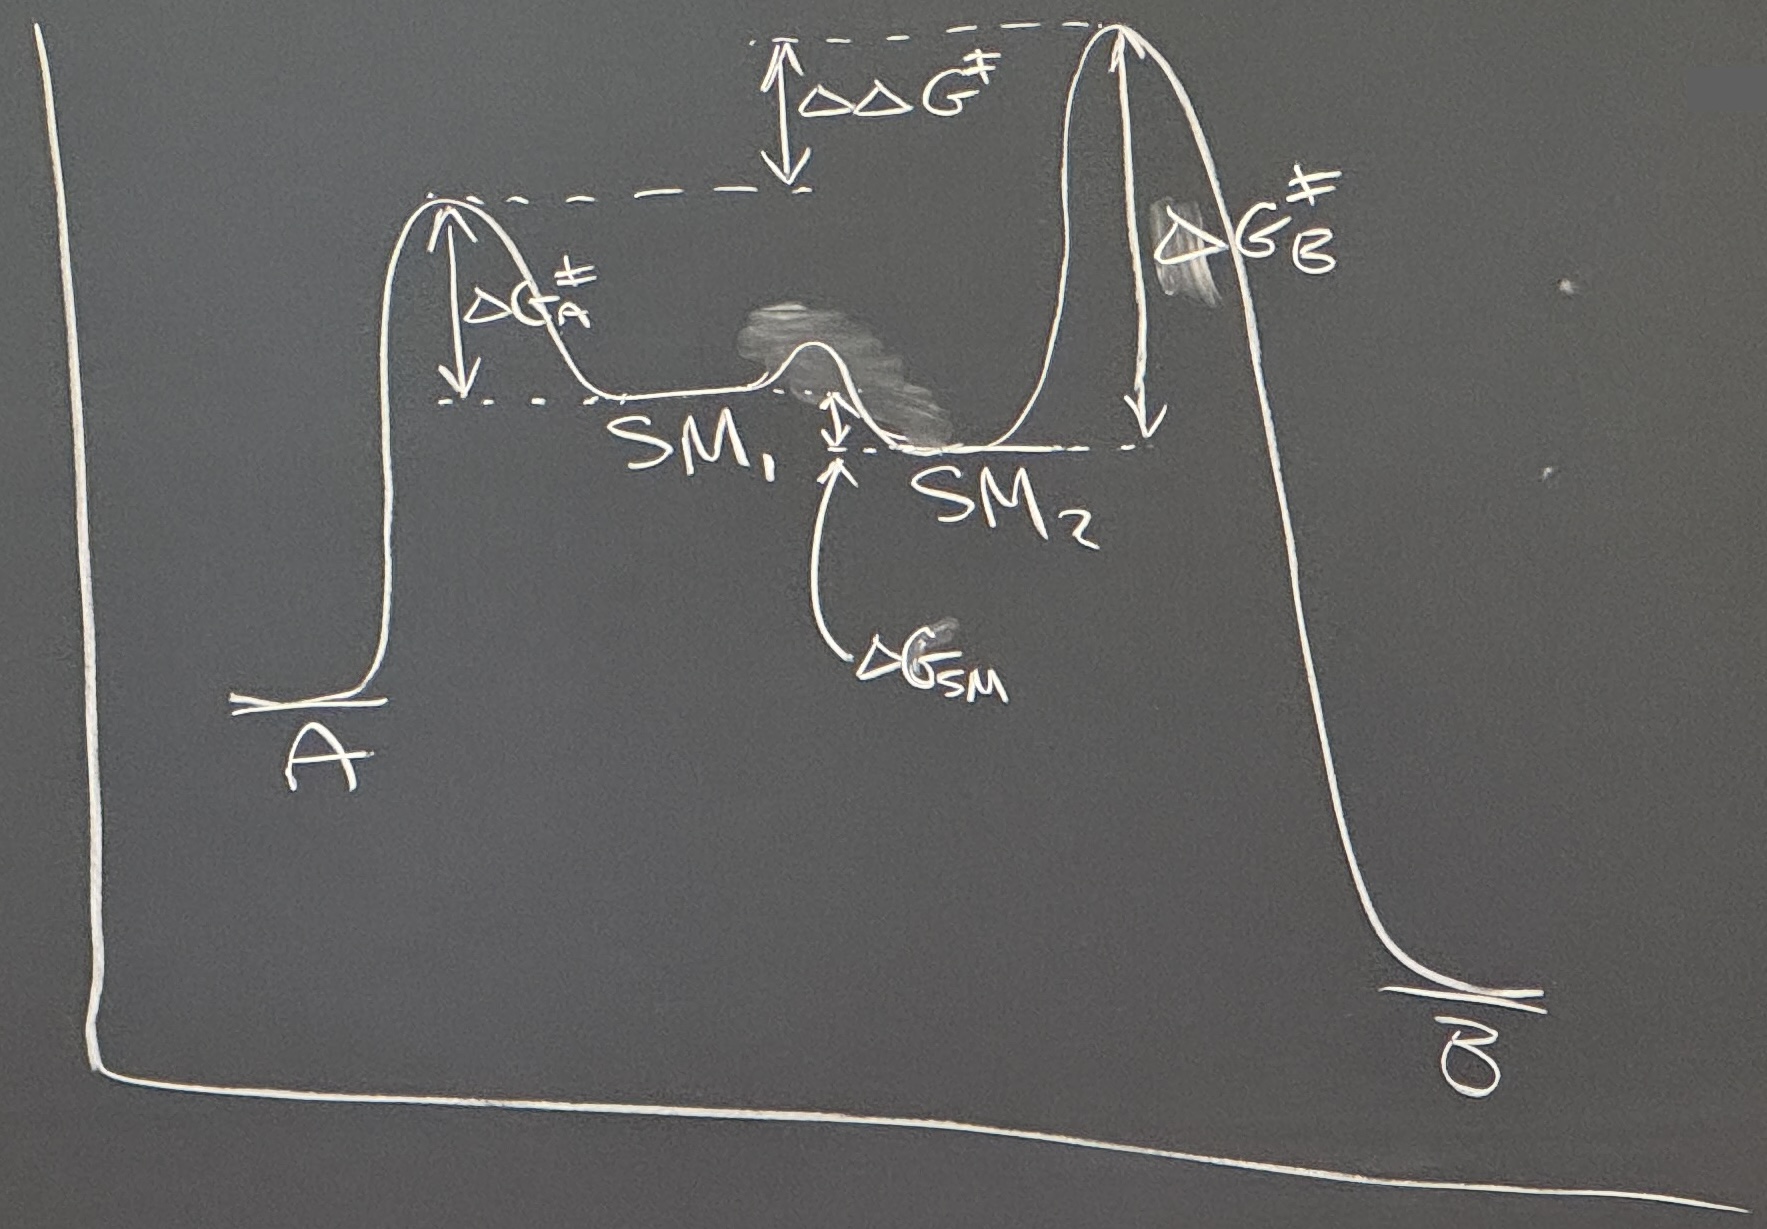 ΔΔG‡
ΔG‡A
ΔG‡B
SM₁
SM₂
ΔG_SM
A
B